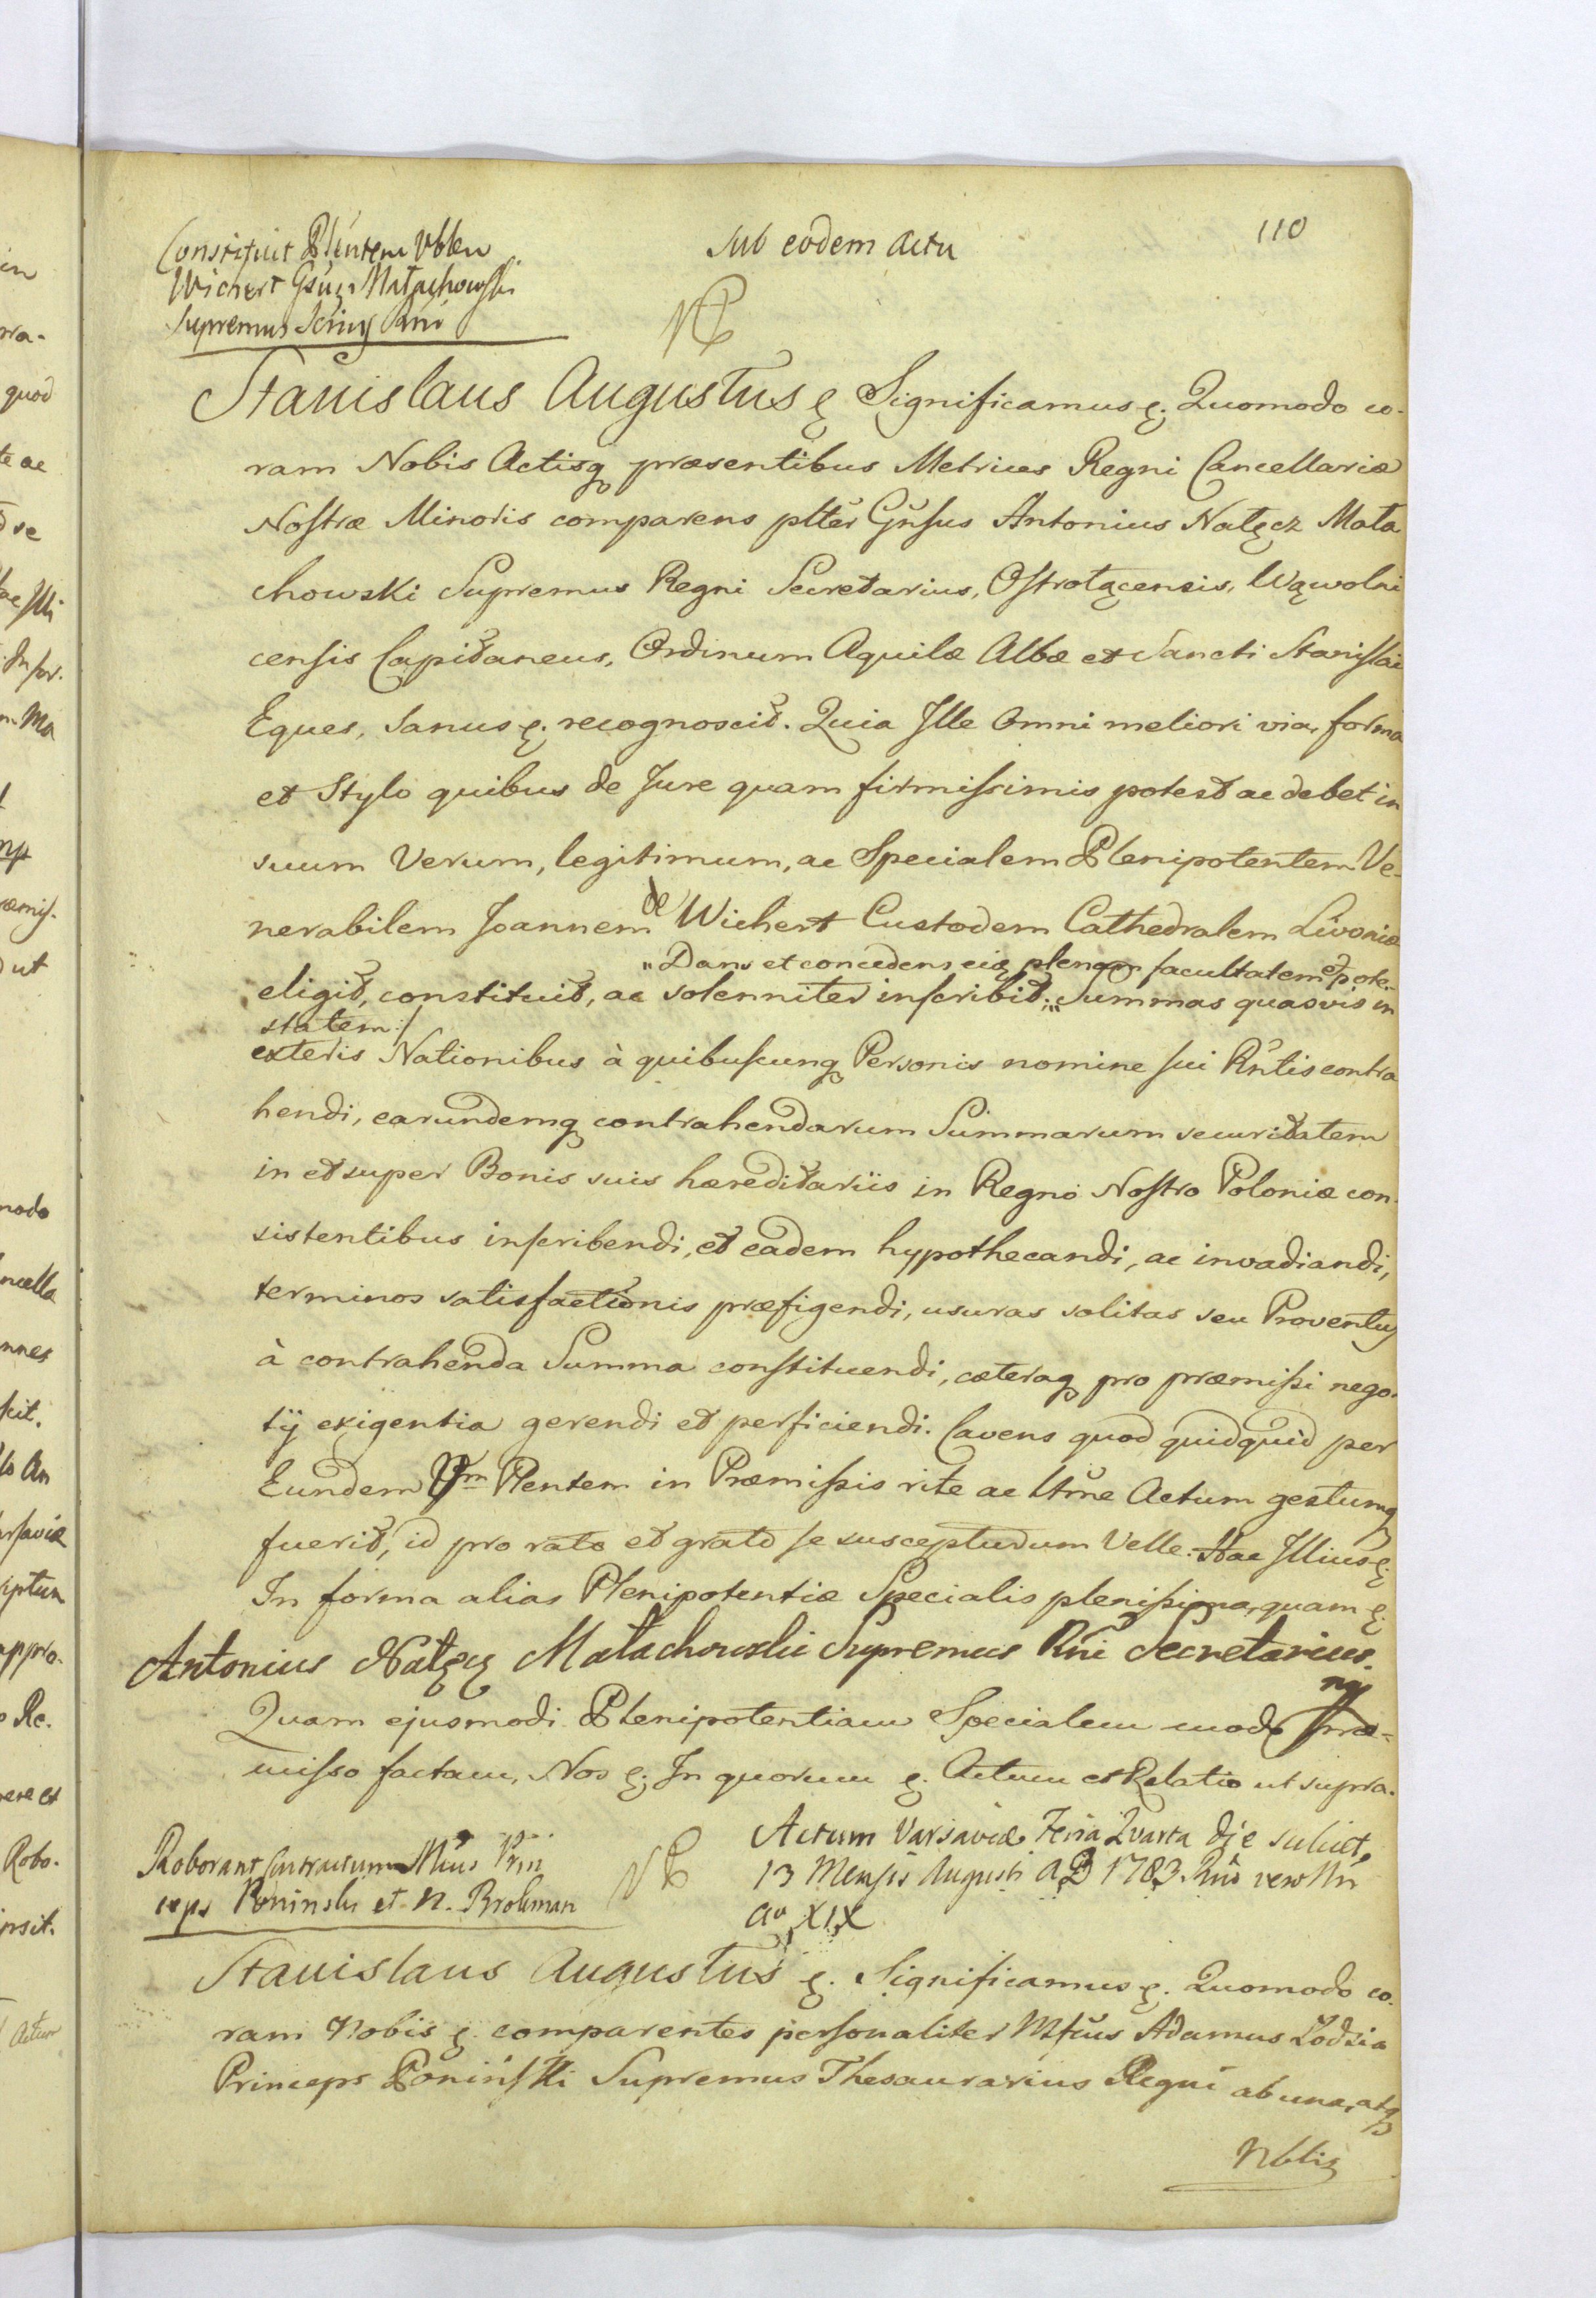 110
Sub eodem Actu
Constituit Plēntem Vblem
Wichert Gsus Małachowski
Supremus Scrius Rni
Stanislaus Augustus ę Significamus ę. Quomodo co-
ram Nobis Actisq præsentibus Metrices Regni Cancellariæ
Nostræ Minoris comparens pltter Gnsus Antonius Nałęcz Mała
chowski Supremus Regni Secretarius, Ostrołęcensis, Wąwolni
censis Capitaneus, Ordinum Aquilæ Albæ et Sancti Stanislai
Eques, Sanus ę. recognoscit. Quia Ille Omni meliori via, forma
et Stylo quibus de Jure quam firmissimis potest ac debet in
suum Verum, legitimum, ac Specialem Plenipotentem Ve-
nerabilem Joannem de Wichert Custodem Cathedralem Livoniæ
"Dans et concedens eiq plenam facultatem et pote-
eligit, constituit, ac solenniter inscribit. Summas quasvis in
statem:/
exteris Nationibus à quibuscunq Personis nomine sui Rntis contra
hendi, earundemq contrahendarum Summarum securitatem
in et super Bonis suis hæreditariis in Regno Nostro Poloniæ con-
sistentibus inscribendi, et eadem hypothecandi, ac invadiandi,
terminos satisfactionis præfigendi, usuras solitas seu Proventus
à contrahenda Summa constituendi, cæteraq pro præmissi nego-
tij exigentia gerendi et perficiendi. Cavens quod quidquid per
Eundem Plentem in Præmissis rite ac ltme Actum gestumq
fuerit, id pro rato et grato se suscepturum Velle. Hac Illius ę.
In forma alias Plenipotentiæ Specialis plenissima, quam ę.
Antonius Nałęcz Małachowski Supremus Rni Secretarius.
mp
Quam ejusmodi Plenipotentiam Specialem modo præ-
misso factam, Nos ę. In quorum ę. Actum et Relatio ut supra.
Roborant Contractum Mcus Prin
ceps Poninski et N. Brokman
Actum Varsaviæ Feria Quarta die scilicet
13 Mensis Augusti A.D 1783. Rni vero Nri
Aо XIX
Stanislaus Augustus ę. Significamus ę. Quomodo co-
ram Nobis ę. comparentes personaliter Mfcus Adamus Łodzia
Princeps Poninski Supremus Thesaurarius Regni ab una, atq
Nblis